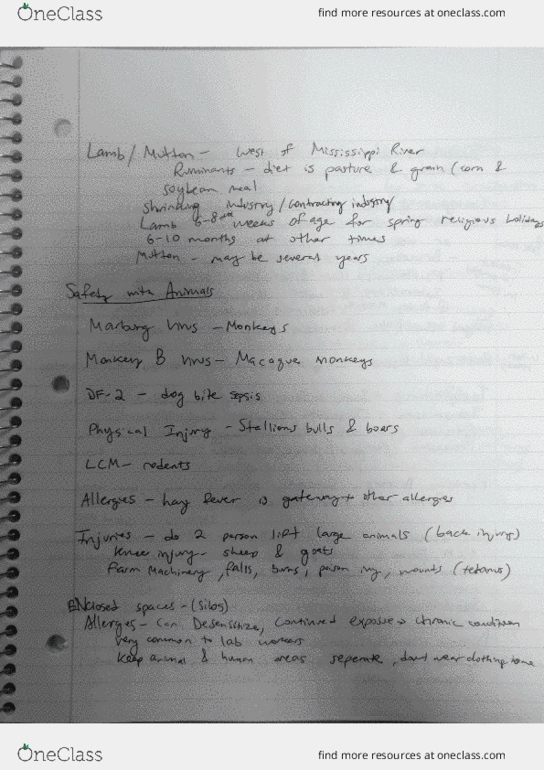 OneClass
find more resources at oneclass.com
Lamb/Mutton - West of Mississippi River
Ruminants - diet is pasture & grain (corn &
soybean meal
shrinking industry/contracting industry
Lamb 6-8 weeks of age for spring religious holidays
6-10 months at other times
Mutton - may be several years
Safety with Animals
Marburg Virus - Monkeys
Monkey B Virus - Macaque monkeys
DF-2 - dog bite sepsis
Physical Injury - Stallions bulls & boars
LCM - rodents
Allergies - hay fever is gateway + other allergies
Injuries - do 2 person lift large animals (back injury)
Knee injury - sheep & goats
Farm Machinery, falls, burns, poison ivy, wounds (tetanus)
ENclosed spaces - (silos)
Allergies - Can Desensitize, Continued exposure → chronic condition
very common to lab workers
keep animal & human areas seperate, dont wear clothing home
OneClass
find more resources at oneclass.com